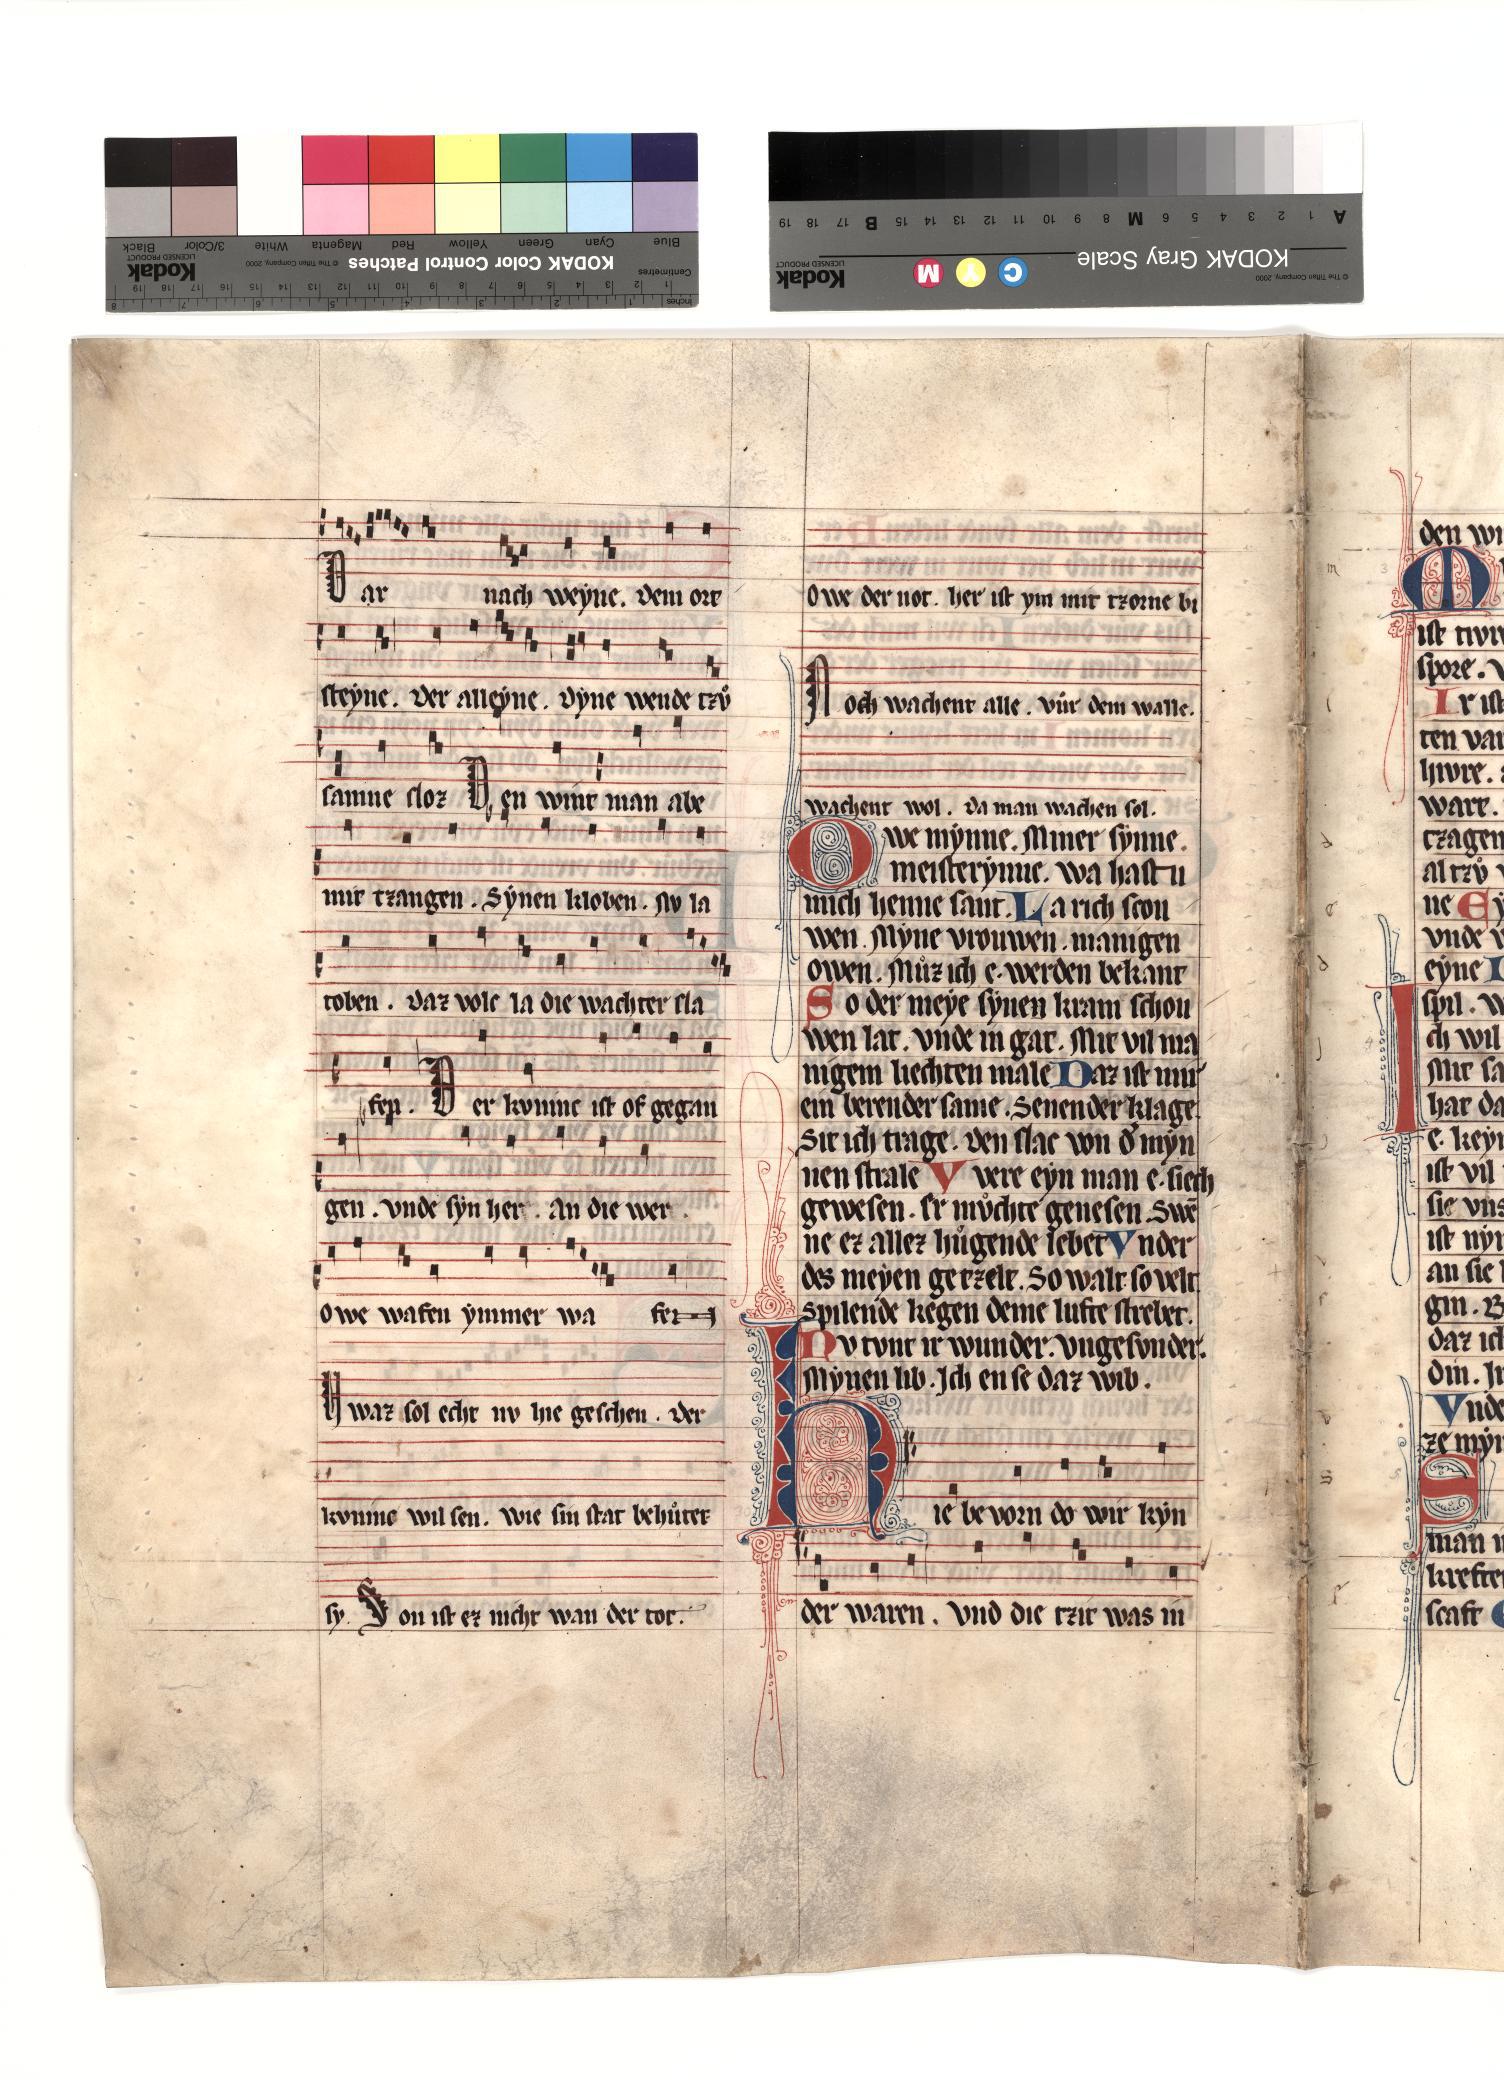 KODAK Color Control Patches
© The Tiffen Company, 2000
Kodak
LICENSED PRODUCT
Blue Cyan Green Yellow Red Magenta White 3/Color Black
Centimetres
inches
KODAK Gray Scale
© The Tiffen Company, 2000
Kodak
LICENSED PRODUCT
C Y M
A 1 2 3 4 5 6 M 8 9 10 11 12 13 14 15 B 17 18 19
Dar nach weyne. dem ort
steyne. der alleyne. dyne wende tzů
samne sloz Den wint man abe
mit tzangen. Synen kloben. Nv la
toben. daz vole la die wachter sla
fen. Der kvninc ist of gegan
gen. vnde syn her. an die wer.
owe wafen ymmer wa fen
waz sol echt nv hie geschen. der
kvninc wil sen. wie sin stat behůtet
sy. Ion ist ez nicht wan der tot.
Owe der not. her ist ym mit tzorne bi
Noch wachent alle. vůr dem walle.
wachent wol. da man wachen sol.
Owe mynne. Miner synne.
meisterynne. wa hastu
mich henne sant. La tich scou
wen. Myne vrouwen. manigen
owen. Můz ich e. werden bekant
So der meye synen kram schou
wen lat. vnde in gat. Mit vil ma
nigem liechten male Daz ist mir
ein berender same. Senender klage
Sit ich trage. den slac von d' myn
nen strale Vvere eyn man e. siech
gewesen. Er můchte genesen. Swē
ne ez allez hůgende lebet Vnder
des meyen getzelt. So walt so velt
spilende kegen deme lufte strebet.
Nv tvnt ir wunder. vngesvnder.
Mynen lib. Ich en se daz wib.
Hie bevorn do wir kyn
der waren. vnd die tzit was in
den wi
M
ist
spore. V
Ir ist
ten var
hivte. a
wart.
tzagen
al tzů
ne Ey
vnde
eyne
spil. W
Ich wil
Mir sa
hat da
e. keyn
ist vil
sie vns
ist nyn
an sie
gin.
daz ich
din. In
Vnde
ze myn
S
man
krefte
scaft